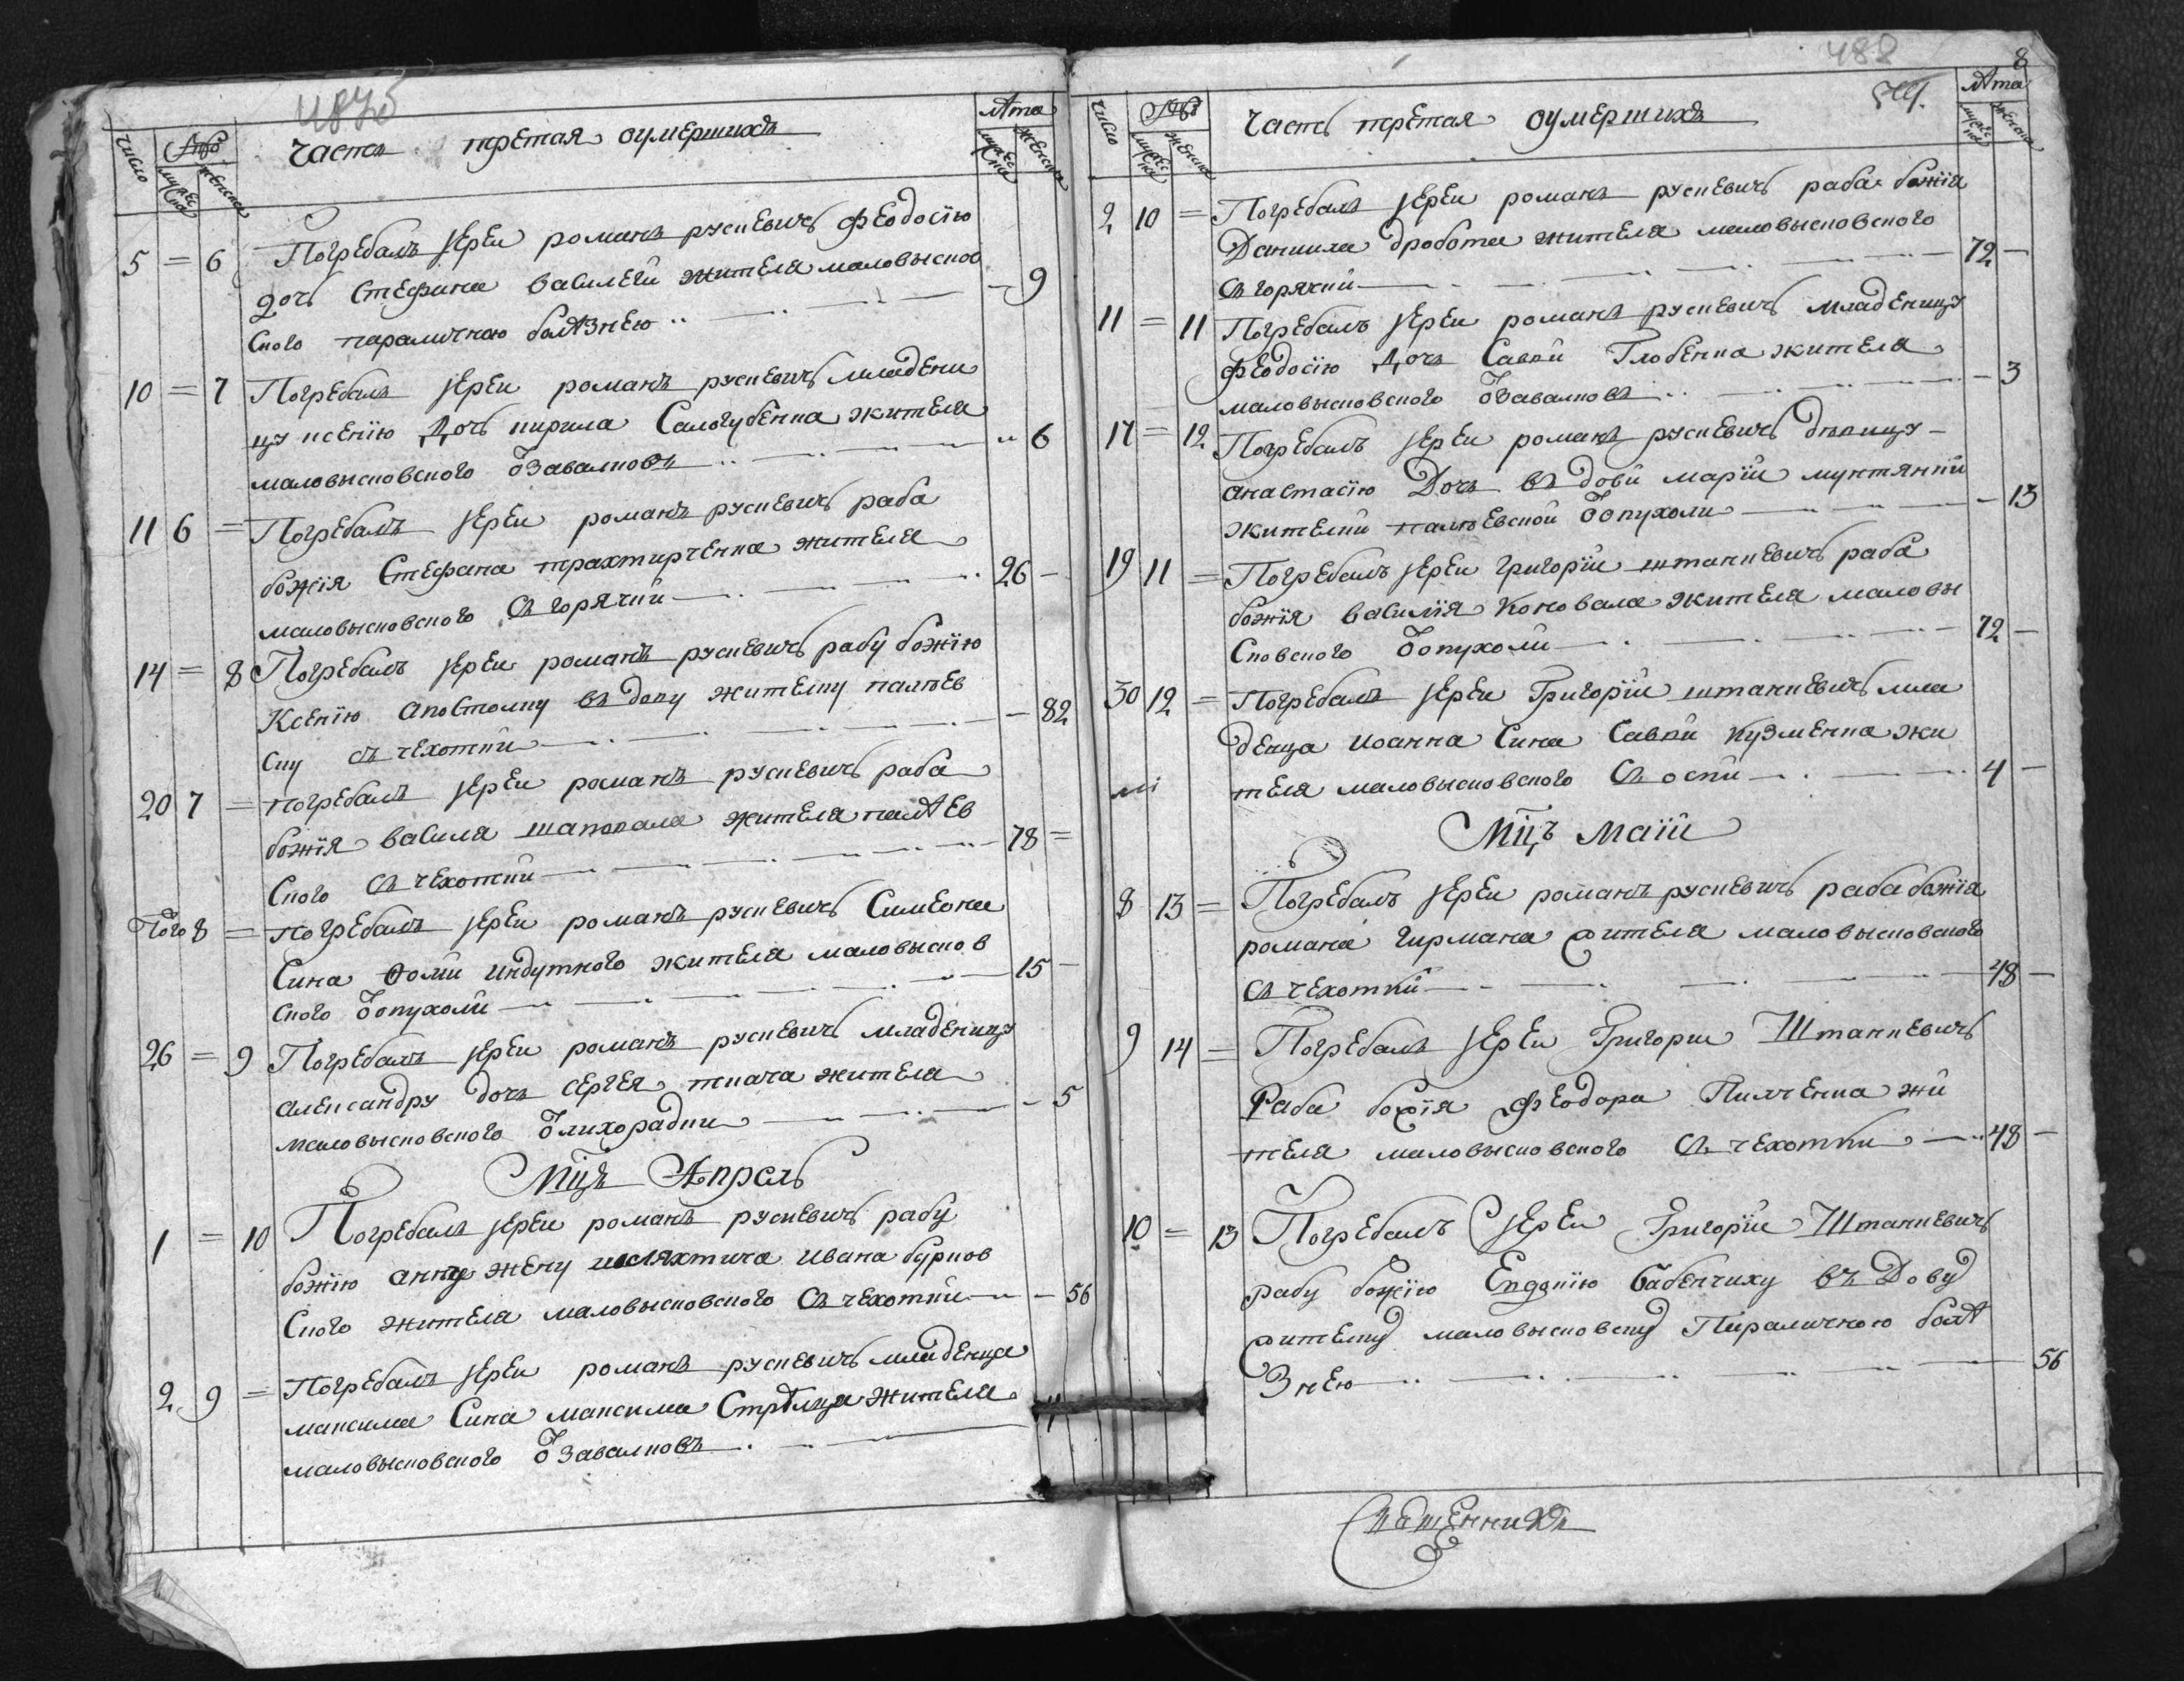 4875
Число
мужес
ка
женска
часть третая оумершихъ
Лѣта
мужес
ка
женска
5 = 6 Погребалъ иерей романъ рускевичь феодосїю
дочь стефана василегй жителя маловысков
ского параличною болѣзнею - 9
10 = 7 Погребалъ иерей романъ рускевичь младени
цу ксенїю дочь кирила Самогубенка жителя
маловысковского ѿ завалковъ 6
11 6 = Погребалъ иерей романъ рускевичь раба
божїя Стефана трахтирченка жителя
маловысковского съ горячки 26 -
14 = 8 Погребалъ иерей романъ рускевичь рабу божїю
Ксенїю апостолку въдову жителку палѣев
ску съ чехотки - 82
20 7 = погребалъ иерей романъ рускевичь раба
божїя василя шаповала жителя палѣев
ского съ чехотки 78 =
Того 8 = погребалъ иерей романъ рускевичь Симеона
сина фоми индутного жителя маловысков
ского ѿ опухоли 15 -
26 = 9 Погребалъ иерей романъ рускевичь младеницу
александру дочь сергея ткача жителя
маловысковского ѿ лихорадки - 5
Мцъ Апрель
1 = 10 Погребалъ иерей романъ рускевичь рабу
божїю анну жену шляхтича ивана бурков
ского жителя маловысковского съ чехотки - 56
2 9 = Погребалъ иерей романъ рускевичь младенца
максима сина максима Стрѣлца жителя
маловысковского ѿ завалковъ
488
8
Число
мужес
ка
женска
часть третая оумершихъ
Лѣта
мужес
ка
женска
2 10 = Погребалъ иерей романъ рускевичь раба божїя
Даниила дробота жителя маловысковского
съ горячки 72 -
11 = 11 Погребалъ иерей романъ рускевичь младеницу
феодосїю дочь Савки Глобенка жителя
маловысковского ѿ завалковъ - 3
17 = 12 Погребалъ иерей романъ рускевичь дѣвицу
анастасїю Дочь въдови марїи мунтянки
жителки палѣевской ѿ опухоли - 13
19 11 = Погребалъ иерей григорїй штанкевичь раба
божїя василїя коновала жителя маловы
сковского ѿ опухоли 72 -
30 12 = Погребалъ иерей Григорїй штанкевичь мла
денца иоанна сина Савки кузменка жи
теля маловысковского съ оспи 4 -
Мцъ маїй
8 13 = Погребалъ иерей романъ рускевичь раба божїя
романа гирмана жителя маловысковского
съ чехотки 48 -
9 14 = Погребалъ иерей Григорїй Штанкевичь
Раба божїя феодора Пилченка жи
теля маловысковского съ чехотки 48 -
10 = 13 Погребалъ иерей Григорїй Штанкевичь
рабу божїю Евдокїю бабенчиху въДову
жителку маловысковску Параличною болѣ
знею 56
Священникъ